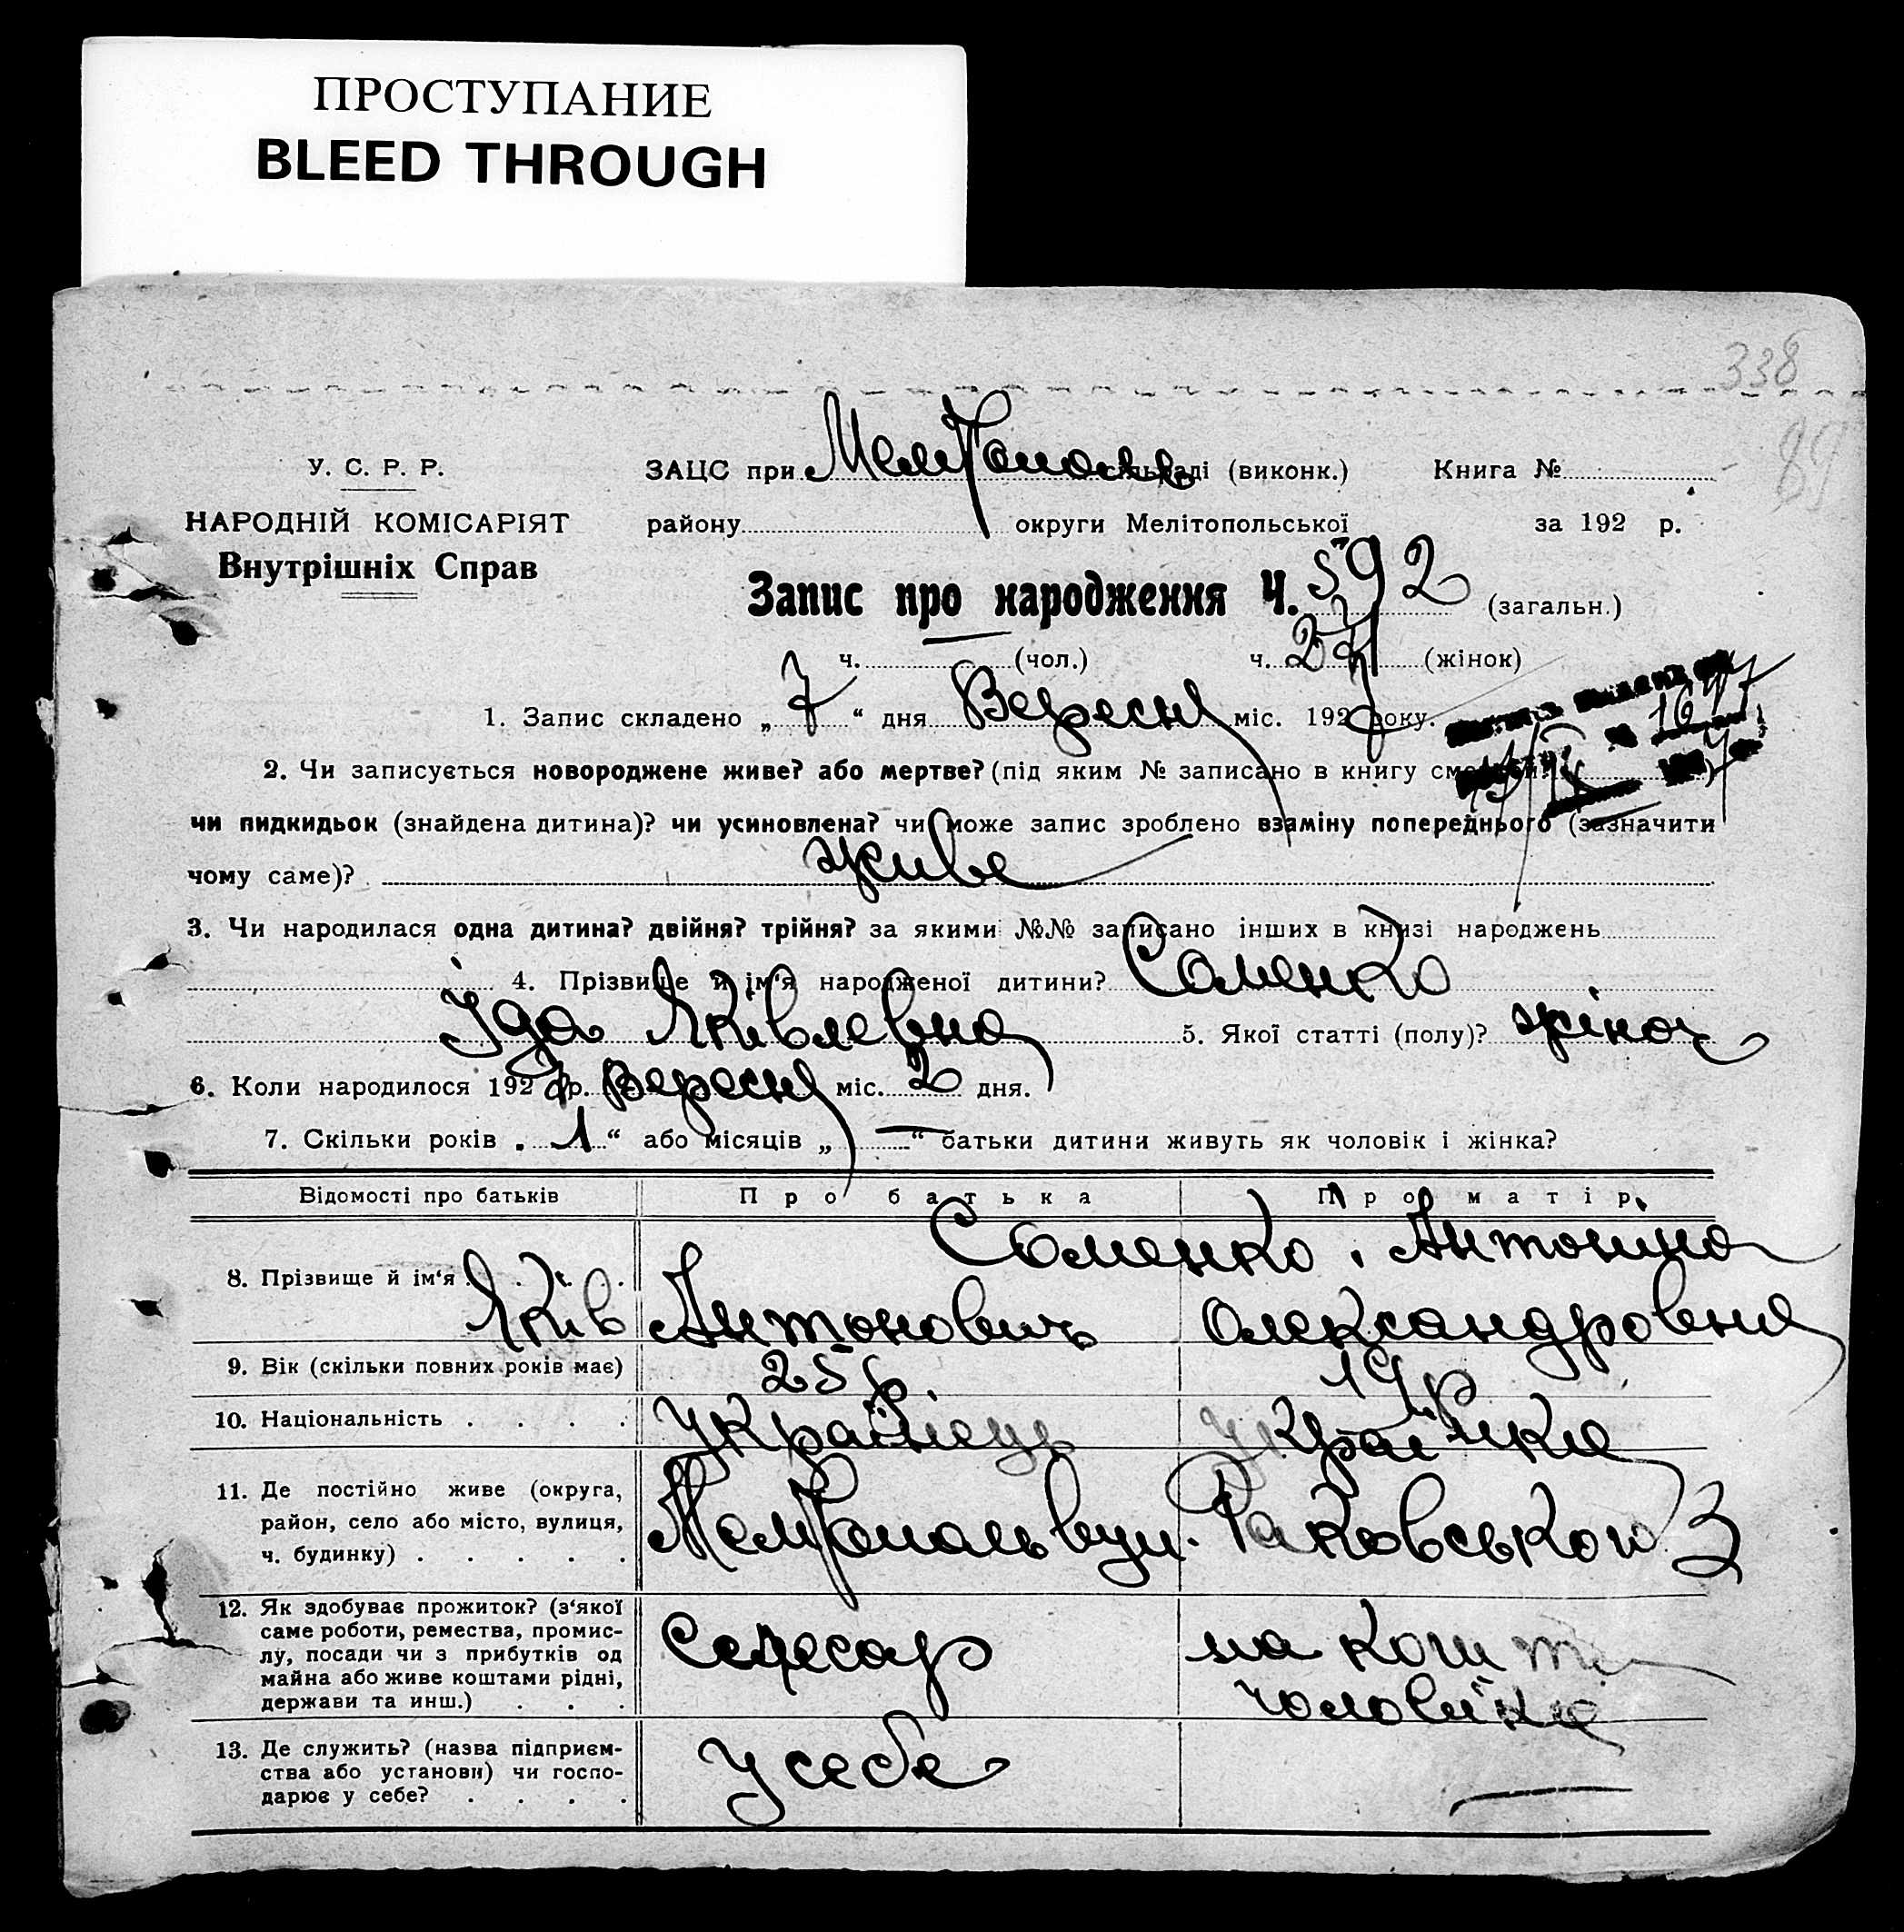 ПРОСТУПАНИЕ
BLEED THROUGH
338
89
У. С. Р. Р.
НАРОДНІЙ КОМІСАРІЯТ
Внутрішніх Справ
ЗАЦС при Мелітополь сільраді (виконк.) Книга №
району округи Мелітопольської за 192 р.
Запис про народження Ч. 592 (загальн.)
ч. (чол.) ч. (жінок)
1. Запис складено „ 7 “ дня Вересня міс. 1927 року.
1677
2. Чи записується новороджене живе? або мертве? (під яким № записано в книгу смертей?)
чи пидкидьок (знайдена дитина)? чи усиновлена? чи може запис зроблено взаміну попереднього (зазначити
чому саме)? живе
3. Чи народилася одна дитина? двійня? трійня? за якими №№ записано інших в книзі народжень
4. Прізвище й ім‘я народженої дитини? Соменко
Іда Яківлевна 5. Якої статті (полу)? жіноч
6. Коли народилося 1927 р. Вересня міс. 2 дня.
7. Скільки років „ 1 “ або місяців „ — “ батьки дитини живуть як чоловік і жінка?
Відомості про батьків Про батька Про матір
8. Прізвище й ім‘я . . . . Соменко . Антонина
Яків Антонович Олександровна
9. Вік (скільки повних років має) 25 р. 19 р
10. Національність . . . . Українець Українка
11. Де постійно живе (округа,
район, село або місто, вулиця,
ч. будинку) . . . . . Мелітополь вул. Раковського 3
12. Як здобуває прожиток? (з‘якої
саме роботи, ремества, промис-
лу, посади чи з прибутків од
майна або живе коштами рідні,
держави та инш.) . . . на кошти
чоловіка
13. Де служить? (назва підприєм-
ства або установи) чи госпо-
дарює у себе? . . . . У себе —